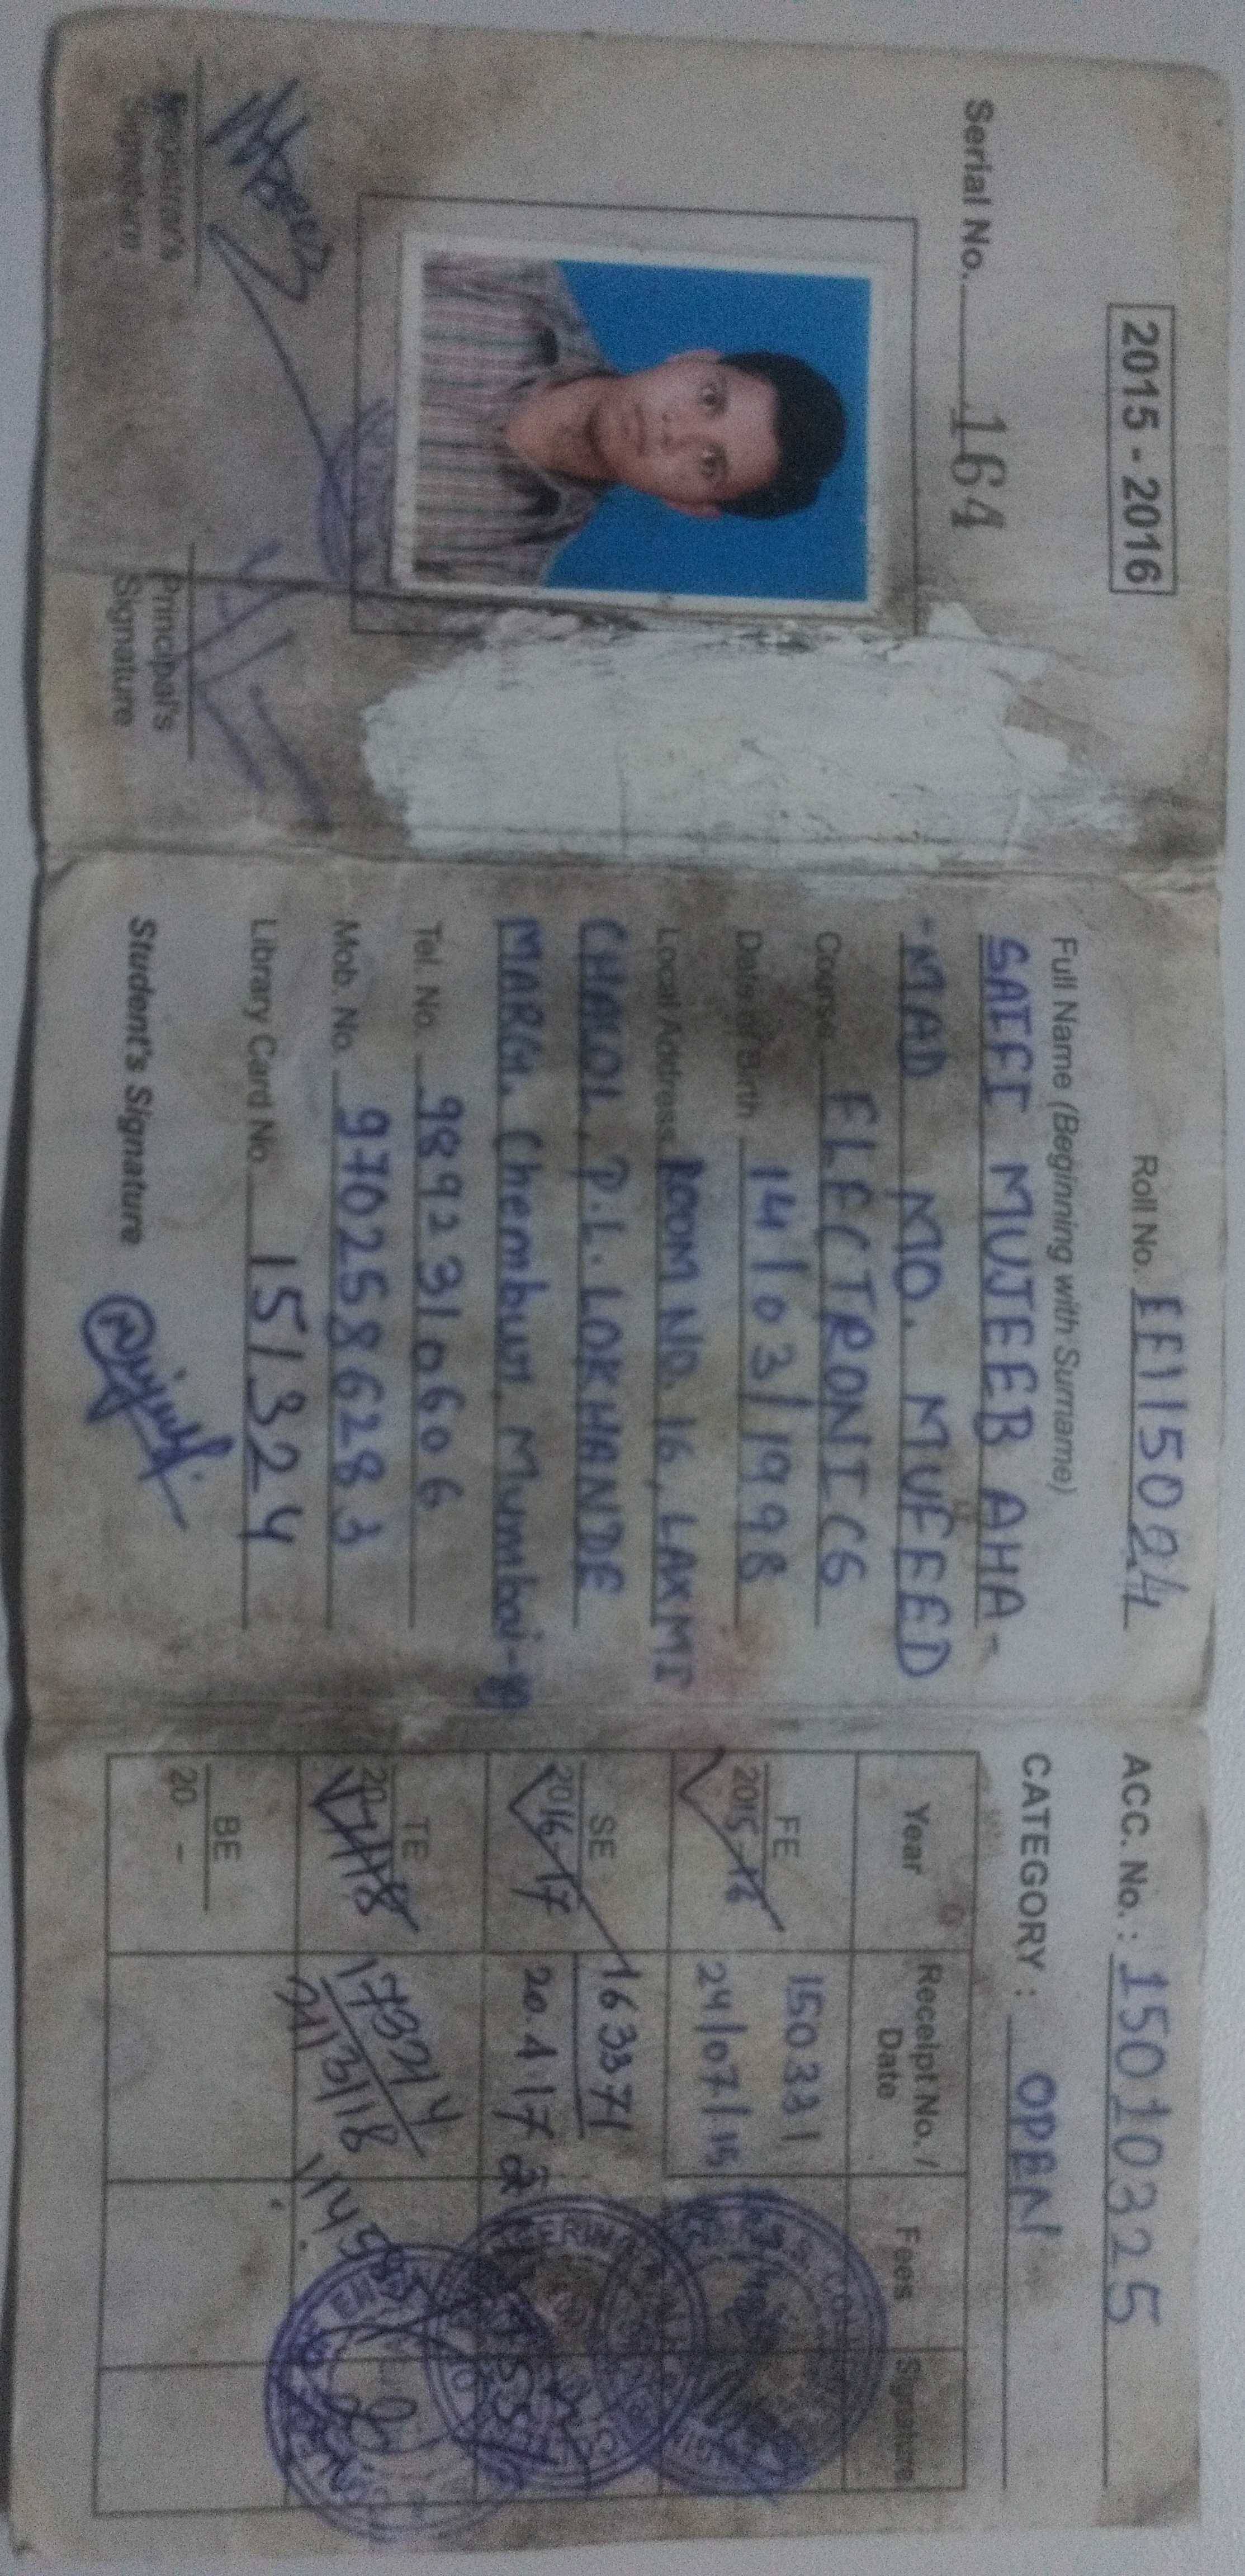 2015 - 2016
Serial No. 164
Registrar's
Signature
Principal's
Signature
Roll No. EE115024
Full Name (Beginning with Surname)
SAIFI MUJEEB AHA-
-MAD MO. MUFEED
Course ELECTRONICS
Date of Birth 14/03/1998
Local Address ROOM NO. 16, LAXMI
CHAWL, P.L. LOKHANDE
MARG, Chembur, Mumbai-
Tel. No. 9892310606
Mob. No. 9702586283
Library Card No. 151324
Student's Signature
ACC. No. : 15010325
CATEGORY : OPEN
Year Receipt No. / Date Fees Signature
FE 150331
2015-16 24/07/15
SE 163371
2016-17 20.1.17
TE 173214
2017-18 21/3/18
BE
20 -